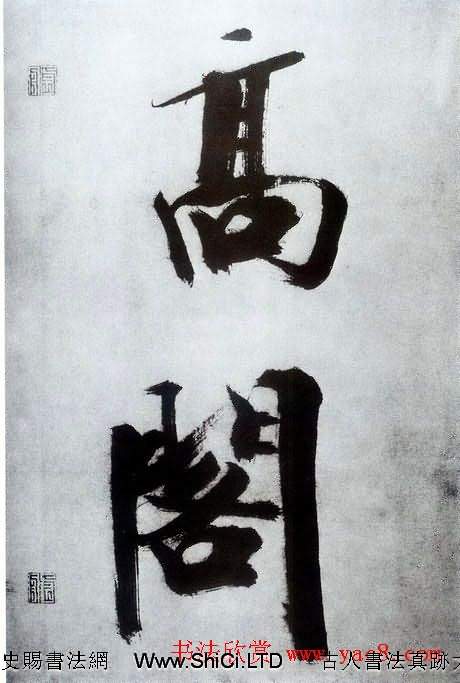 髙
閣
书法欣赏 www.yac8.com
史賜書法網 Www.ShiCi.LTD 古人書法真跡大